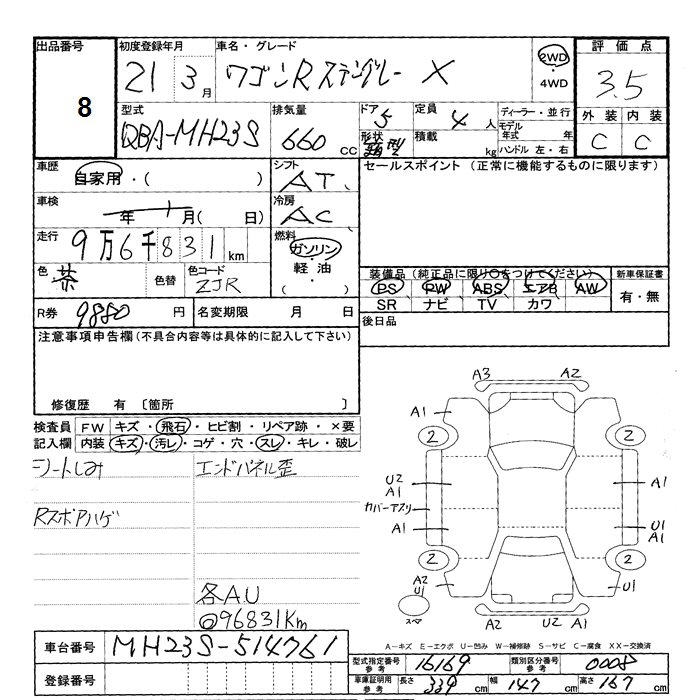 出品番号 初度登録年月 車名・グレード 評価点
8 21 3月 ワゴンRスティングレー X 2WD ・ 4WD 3.5
型式 排気量 ドア 5 定員 4人 ディーラー・並行 外装 内装
QBA-MH23S 660 CC 形状 積載 kg モデル年式 年 C C
ハンドル 左・右
車歴 自家用・( ) シフト AT セールスポイント (正常に機能するものに限ります)
車検 年 月( 日) 冷房 AC
走行 9万6千831km 燃料 ガソリン・軽油・( )
色 茶 色替 色コード ZJR
装備品 (純正品に限り○をつけてください) 新車保証書
PS PW ABS エアB AW 有・無
SR ナビ TV カワ
R券 9880円 名変期限 月 日 後日品
注意事項申告欄 (不具合内容等は具体的に記入して下さい)
修復歴 有 〔箇所 〕
検査員 FW キズ・飛石・ヒビ割・リペア跡・×要
記入欄 内装 キズ・汚レ・コゲ・穴・スレ・キレ・破レ
シートしみ エンドパネル歪
Rスポアハゲ
各AU
@96831Km
A3 A2
A1
2 2
U2
A1 A1
カバーアスリ
A1 U1
A1
2 2
A2
U1 U1
スペア A2 U2 A1
A-キズ E-エクボ U-凹み W-補修跡 S-サビ C-腐食 XX-交換済
車台番号 MH23S-514761
登録番号
型式指定番号 参考 16169 類別区分番号 参考 0008
車庫証明用 参考 長さ 339cm 幅 147cm 高さ 167cm